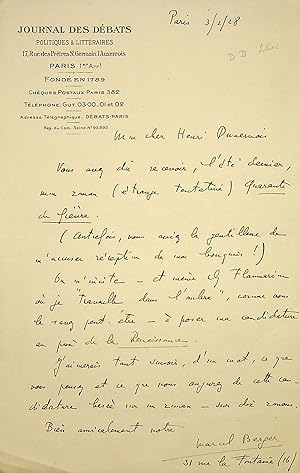 JOURNAL DES DÉBATS
POLITIQUES & LITTÉRAIRES
17, Rue des Prêtres St Germain l'Auxerrois
PARIS 1er Arrt
FONDÉ EN 1789
CHÈQUES POSTAUX PARIS 382
TÉLÉPHONE: GUT. 03.00, 01 et 02
Adresse Télégraphique: DÉBATS-PARIS
Reg. du Com. Seine N° 93.890
Paris 3/2/28
Mon cher Henri Duvernois
Vous avez dû recevoir, l'été dernier,
mon roman (étrange tentative) Quarante
de fièvre
(autrefois, vous aviez la gentillesse de
m'accuser réception de mes bouquins!)
On m'incite – et même chez Flammarion
où je "travaille dans l'ombre", comme vous
le savez peut-être – à poser ma candidature
au prix de la Renaissance.
J'aimerais tant savoir, d'un mot, ce que
vous pensez et ce que vous augurez de cette can-
didature basée sur un roman – sur dix romans.
Bien amicalement votre
Marcel Berger
31 rue La Fontaine (16)